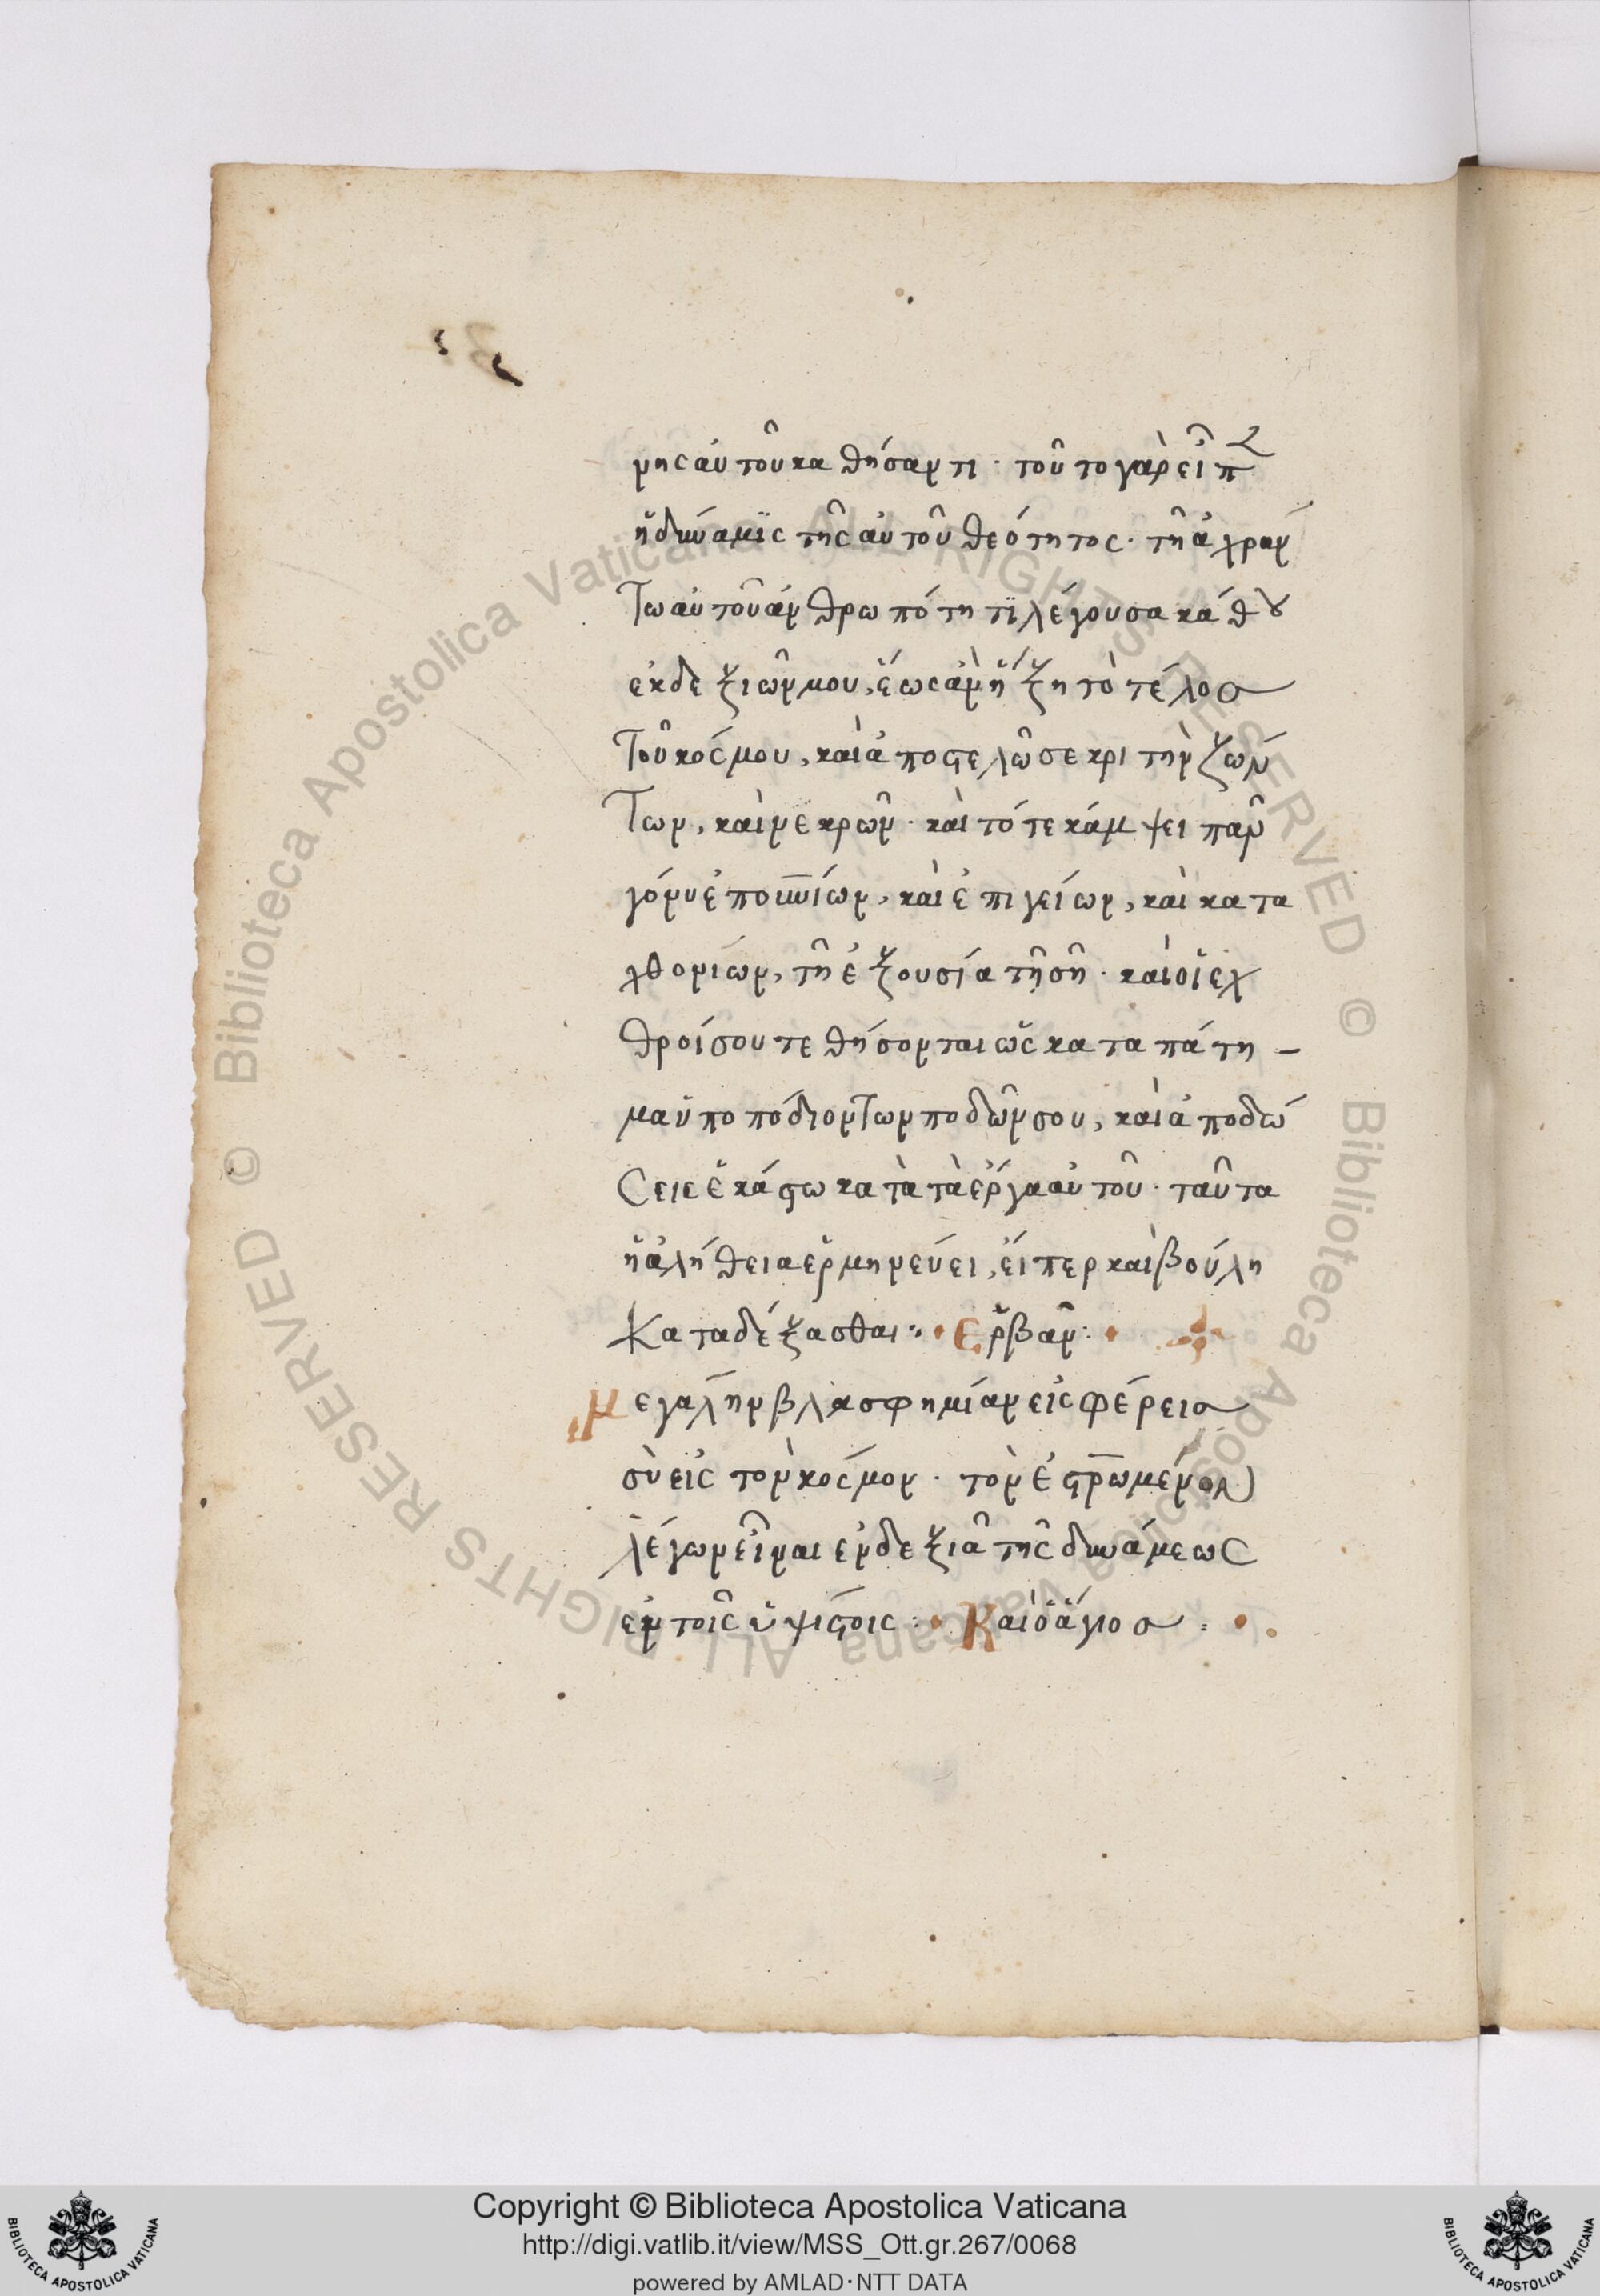 νης αὐτοῦ καθήσαντι · τοῦτο γὰρ εἶπ
ἡ δύναμϊς τῆς αὐτοῦ θεότητος · τῆ ἀχράν
τω αὐτοῦ ἀνθρωπότητϊ λέγουσα κάθου
ἐκ δεξιῶν μου, ἕως ἀν ἥξη τὸ τέλος
τοῦ κόσμου, καὶ ἀποστελῶ σε κριτὴν ζών
των, καὶ νεκρῶν · καὶ τότε κάμψει πᾶν
γόνυ ἐπουνίων, καὶ ἐπιγείων, καὶ κατα
χθονίων, τῆ ἐξουσία τῆ σῆ · καὶ οἱ ἐχ
θροί σου τεθήσονται ὡς καταπάτη –
μα ὑποπόδιον τῶν ποδῶν σου, καὶ ἀποδώ
σειε ἑκάστω κατὰ τὰ ἔργα αὐτοῦ · ταῦτα
ἡ ἀλήθεια ἑρμηνεύει, εἴπερ καὶ βούλη
καταδέξασθαι : · Ερβαν : ·
Μεγάλην βλασφημίαν εἰσφέρεις
σὺ εἰς τὸν κόσμον · τὸν ἐστρωμένον
λέγων εἶναι ἐν δεξιᾶ τῆς δυνάμεως
ἐν τοῖς ὑψίστοις : · Καὶ ὁ ἅγιος : ·
Copyright © Biblioteca Apostolica Vaticana
http://digi.vatlib.it/view/MSS_Ott.gr.267/0068
powered by AMLAD·NTT DATA
BIBLIOTECA APOSTOLICA VATICANA
BIBLIOTECA APOSTOLICA VATICANA
© Biblioteca Apostolica Vaticana ALL RIGHTS RESERVED © Biblioteca Apostolica Vaticana ALL RIGHTS RESERVED